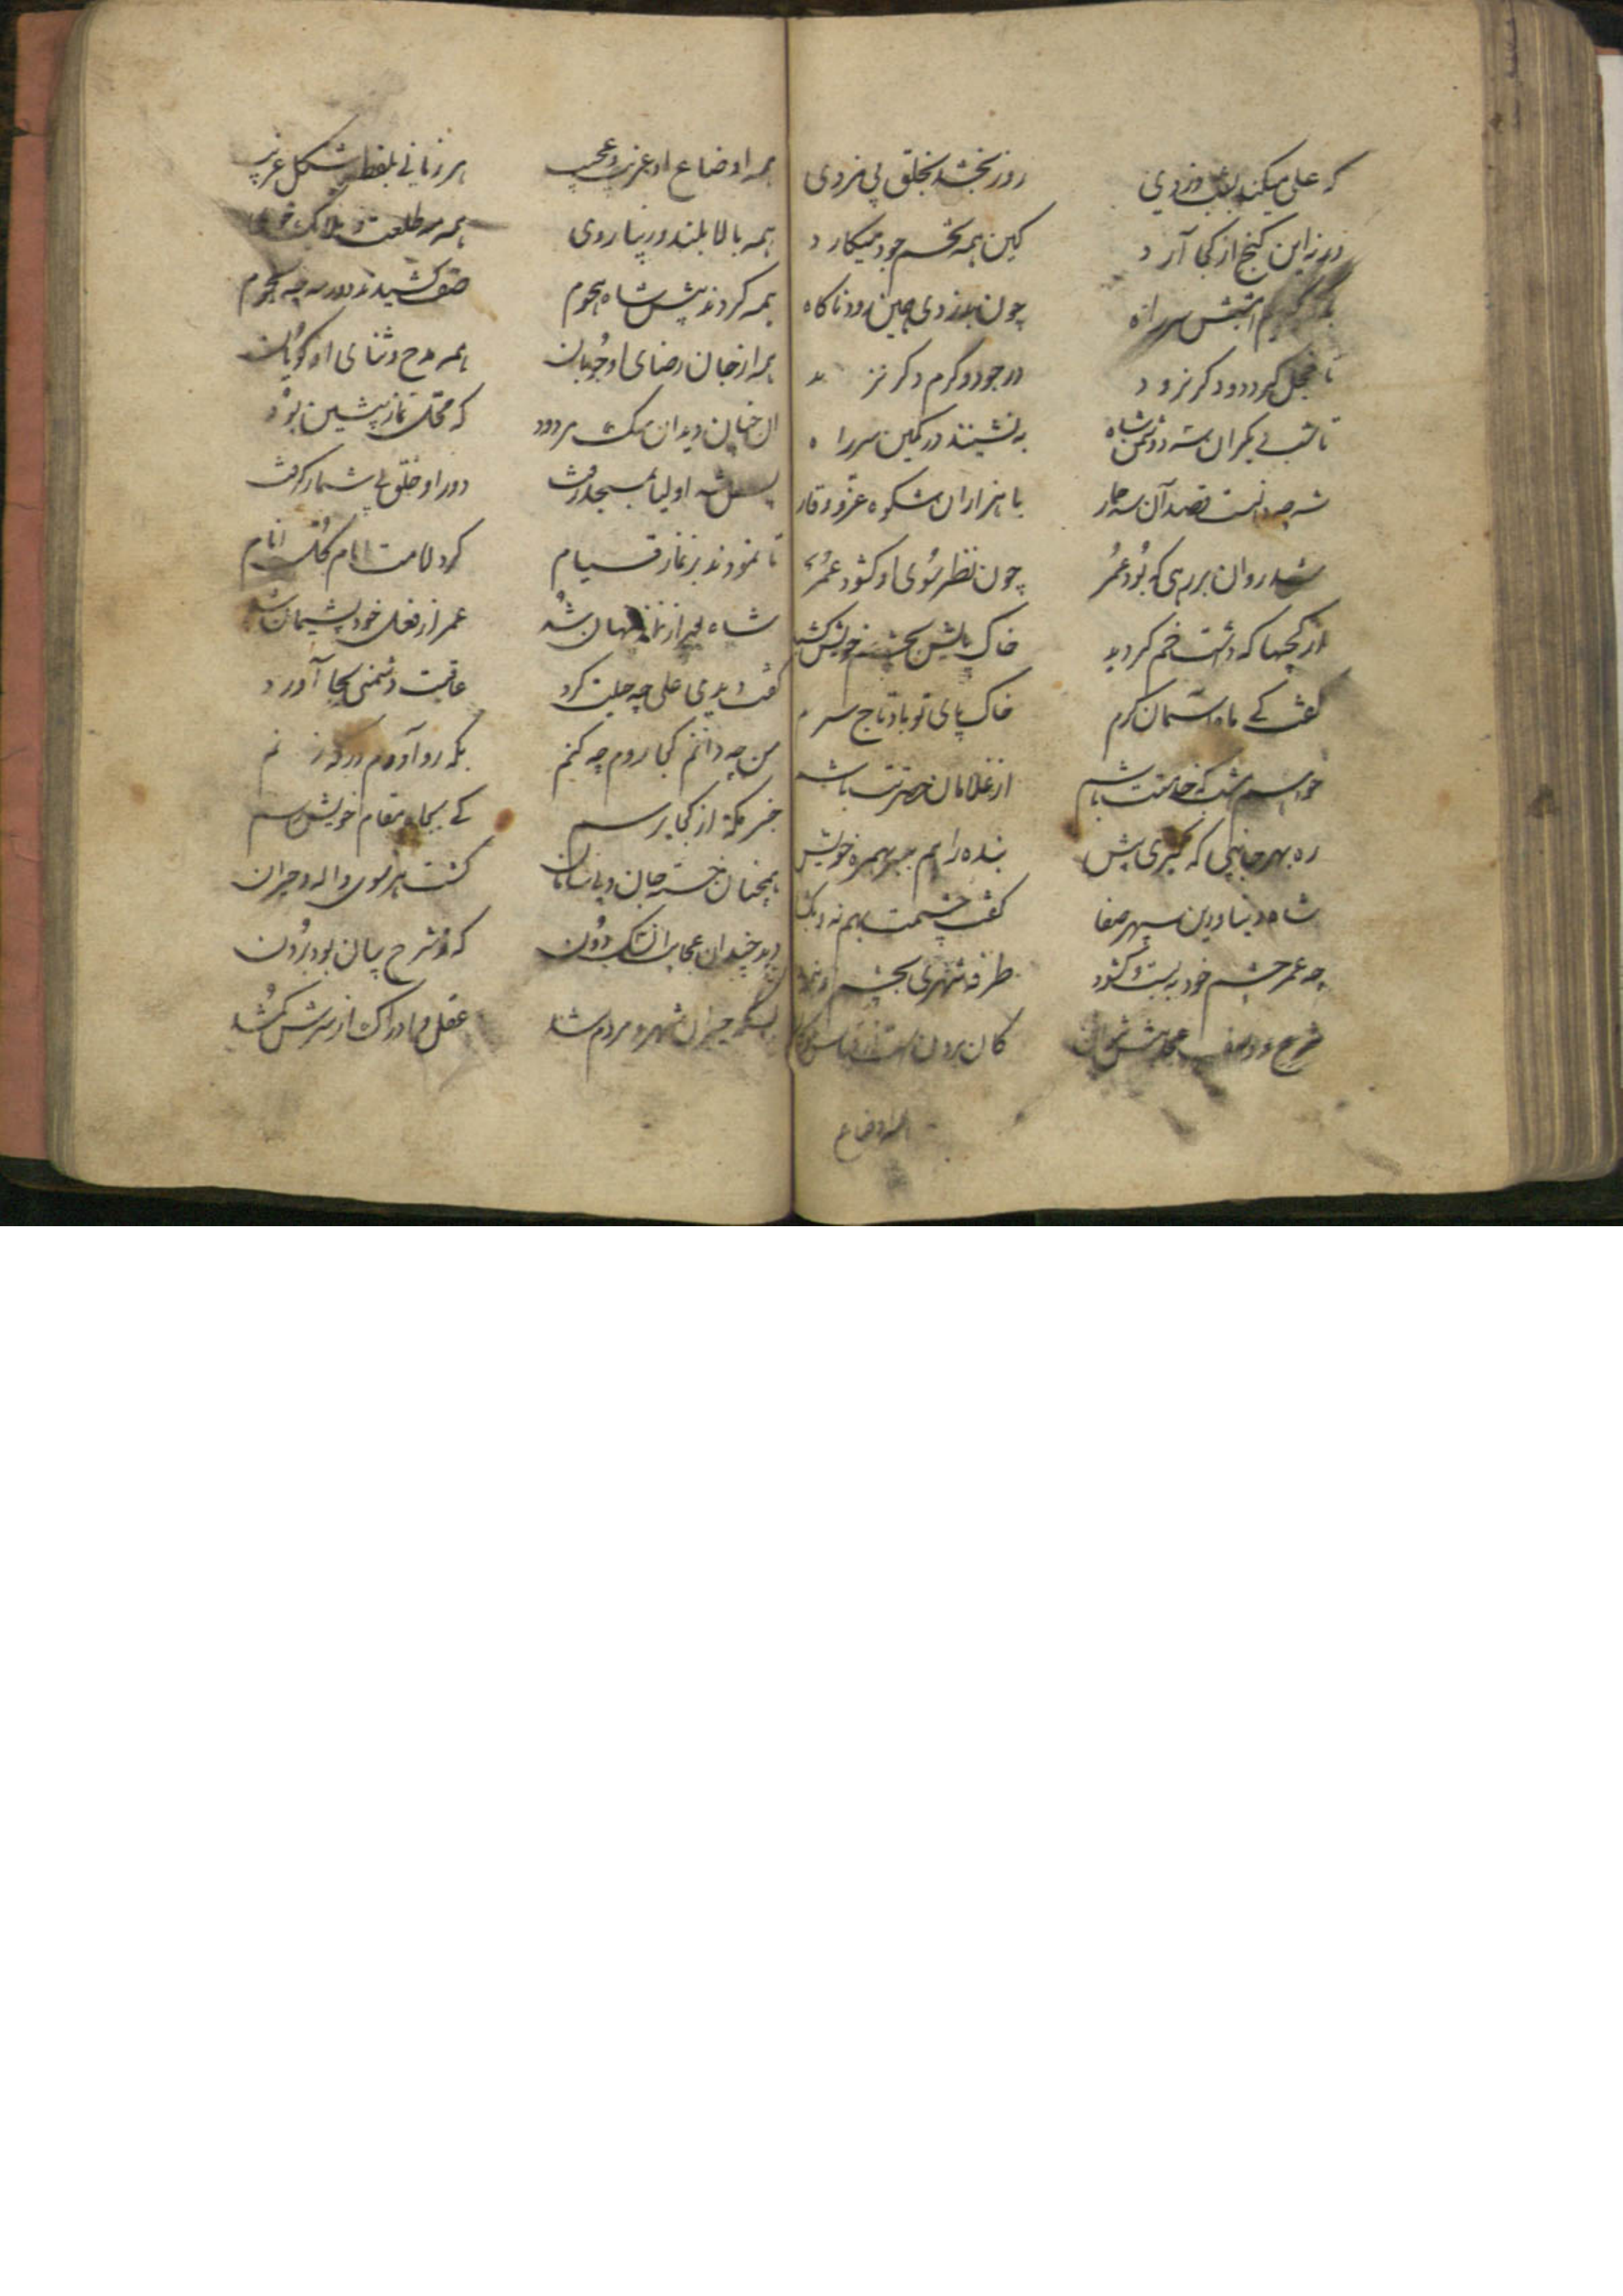 که علی میکند بشب دزدی روز بخشد بخلق بی مزدی
ورنه این کنج از کجا آرد کین همه تخم جود میکارد
امشبش سر راه چون بدزدی همین رود ناکاه
تا خجل کردد و دکر نرود در جود و کرم دکر نزند
تا شب بیکران سه دشمن شاه بنشینند در کمین سر راه
شه چو دانست قصد آن سه حمار با هزاران شکوه عز و وقار
شد روان بر رهی که بود عمر چون نظر سوی او کشود عمر
از کجیها که داشت خم کردید خاک پایش بچشم خویش کشید
کفت کی ماه آسمان کرم خاک پای تو باد تاج سرم
خواهم امشب که خدمت باشم از غلامان حضرتت باشم
ره بهر جانبی که کیری پیش بنده را هم ببر بهمره خویش
شاه دنیا و دین سپهر صفا کفت چشمت بهم نه و بکشا
چه عمر چشم خود به بست و کشود طرفه شهری بچشم او بنمود
شرح و وصف عجایبش نتوان کان برون است از قیاس
همه اوضاع
همه اوضاع او غریب و عجیب هر زبانی بلفظ و شکل غریب
همه بالا بلند و زیبا روی همه مه طلعت و ملایک خوی
همه کردند پیش شاه هجوم صف کشیدند دور مه چه نجوم
همه از جان رضای او جویان همه مدح و ثنای او کویان
آن خیابان دیدان سک مردود که محل نماز پیشین بود
پس شه اولیا بمسجد رفت دور او خلق بی شمار کرفت
تا نمودند بر نماز قیام کرد امامت امام کل انام
شاه از نظر نهان شد عمر از فعل خود پشیمان شد
کفت دیدی علی چه حیلت کرد عاقبت دشمنی بجا آورد
من چه دانم کجا روم چه کنم بکه رو آورم در که زنم
خبر مکه از کجا پرسم کی بجا و مقام خویش رسم
همچنان خسته جان و کشت هر سوی واله و حیران
دید چندان عجایب آن سک دون که ز شرح بیان بود بیرون
بسکه حیران شهر و مردم شد عقل و ادراک از سرش کم شد